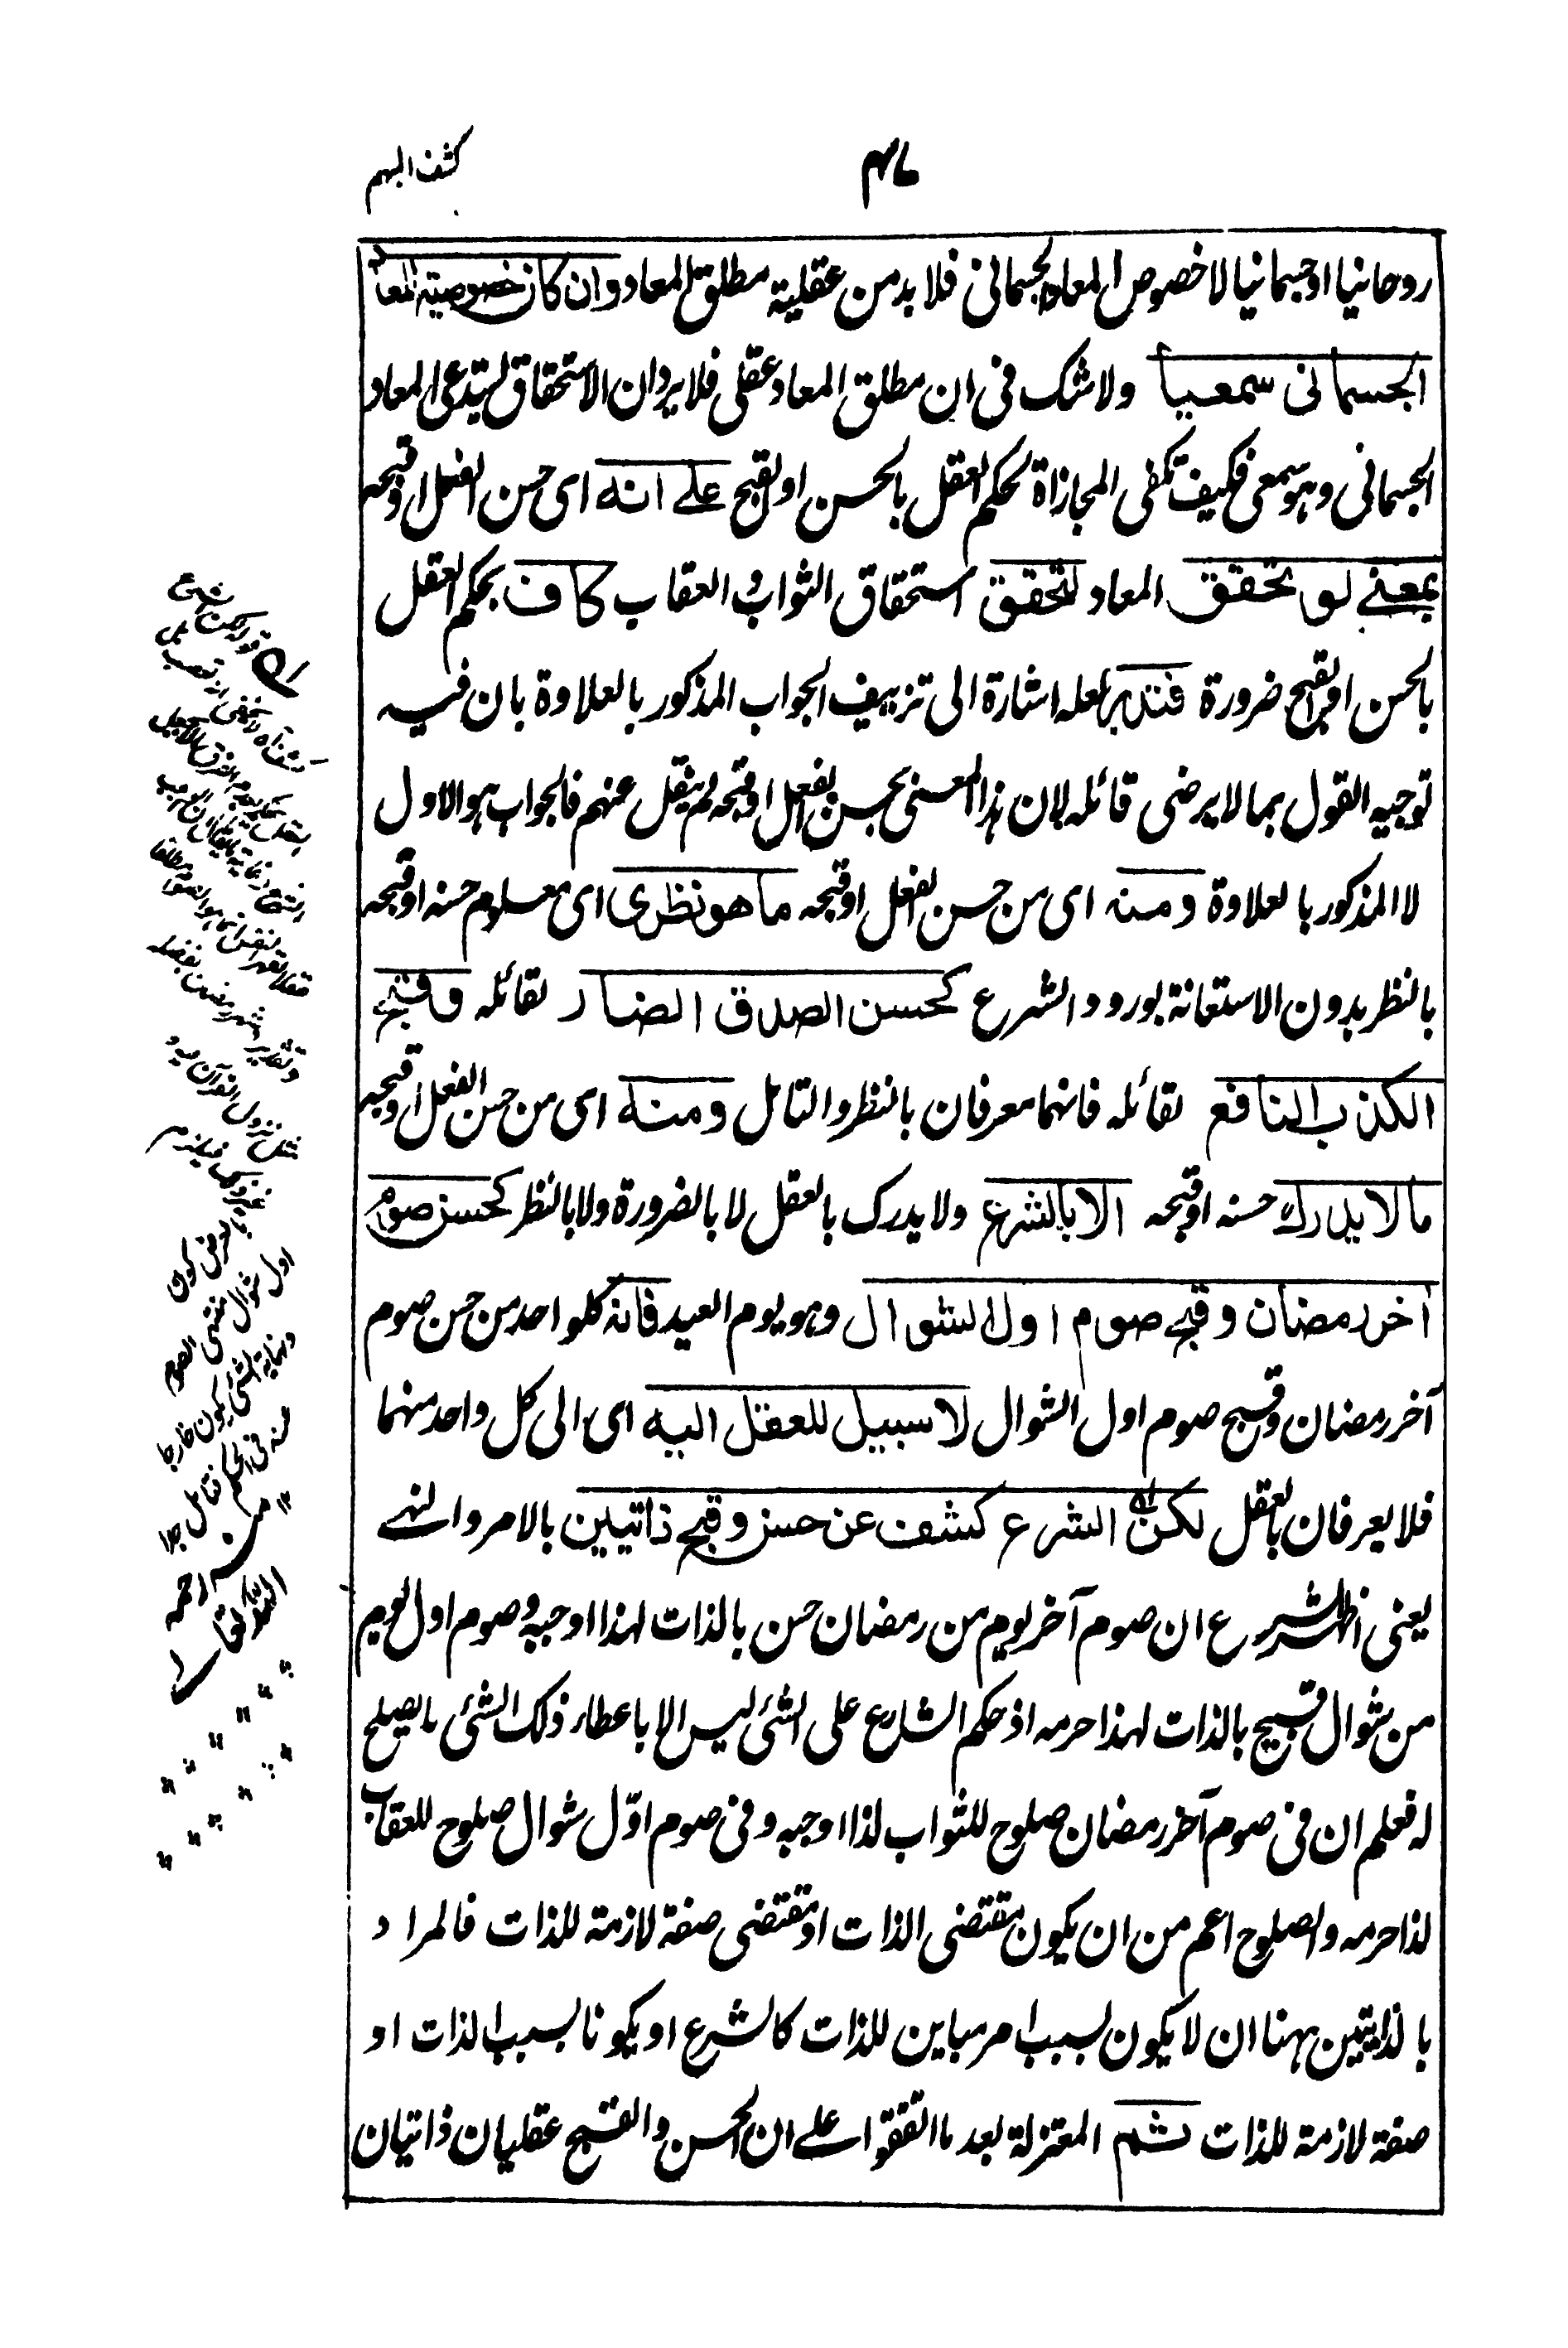 كشف المبهم
روحانيا اوجسمانيا لا خصوص المعاد الجسمانى فلا بد من عقلية مطلق المعاد وان كان خصوصية المعاد
الجسمانى سمعيا ولا شك فى ان مطلق المعاد عقلى فلا يرد ان الاستحقاق يستدعى المعاد
الجسمانى وهو سمعى فكيف تكفى المجازاة لحكم العقل بالحسن او القبح على انه اى حسن الفعل او قبحه
بمعنى لو تحقق المعاد لتحقق استحقاق الثواب والعقاب كاف بحكم العقل
بالحسن او القبح ضرورة فتدبر لعله اشارة الى تزييف الجواب المذكور بالعلاوة بان فيه
توجيه القول بما لا يرضى قائله لان هذا المعنى بحسن الفعل او قبحه لم ينقل عنهم فالجواب هو الاول
لا المذكور بالعلاوة ومنه اى من حسن الفعل او قبحه ما هو نظرى اى معلوم حسنه او قبحه
بالنظر بدون الاستعانة بورود الشرع كحسن الصدق الضار لقائله وقبح
الكذب النافع لقائله فانهما معرفان بالنظر والتامل ومنه اى من حسن الفعل او قبحه
ما لا يدرك حسنه او قبحه الا بالشرع ولا يدرك بالعقل لا بالضرورة ولا بالنظر كحسن صوم
آخر رمضان وقبح صوم اول الشوال وهو يوم العيد فانه كلواحد من حسن صوم
آخر رمضان وقبح صوم اول الشوال لا سبيل للعقل اليه اى الى كل واحد منهما
فلا يعرفان بالعقل لكن الشرع كشف عن حسن وقبح ذاتيين بالامر والنهے
يعنى اظهر الشرع ان صوم آخر يوم من رمضان حسن بالذات لهذا اوجبه وصوم اول يوم
من شوال قبيح بالذات لهذا حرمه اذ حكم الشارع على الشئ ليس الا باعطاء ذلك الشئ ما يصلح
له فعلم ان فى صوم آخر رمضان صلوح للثواب لذا اوجبه وفى صوم اوّل شوال صلوح للعقاب
لذا حرمه والصلوح اعم من ان يكون مقتضى الذات او مقتضى صفة لازمة للذات فالمراد
بالذاتيين ههنا ان لا يكون بسبب امر مباين للذات كالشرع او يكونا بسبب الذات او
صفة لازمة للذات ثم المعتزلة بعد ما اتفقوا على ان الحسن والقبح عقليان ذاتيان
اول شوال منتهى الصوم
يكون خارجا
عنه فى الحكم فتامل جدا
منه رحمه
الله تعالے